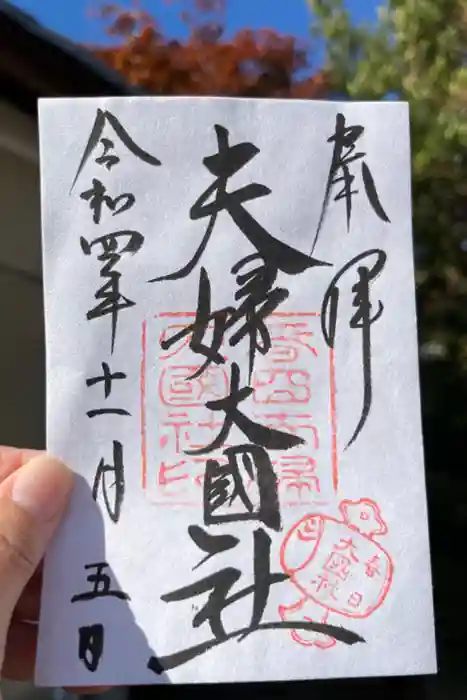 奉拝
夫婦大國社
春日夫婦
大國社印
春日
大國社
令和四年十一月五日